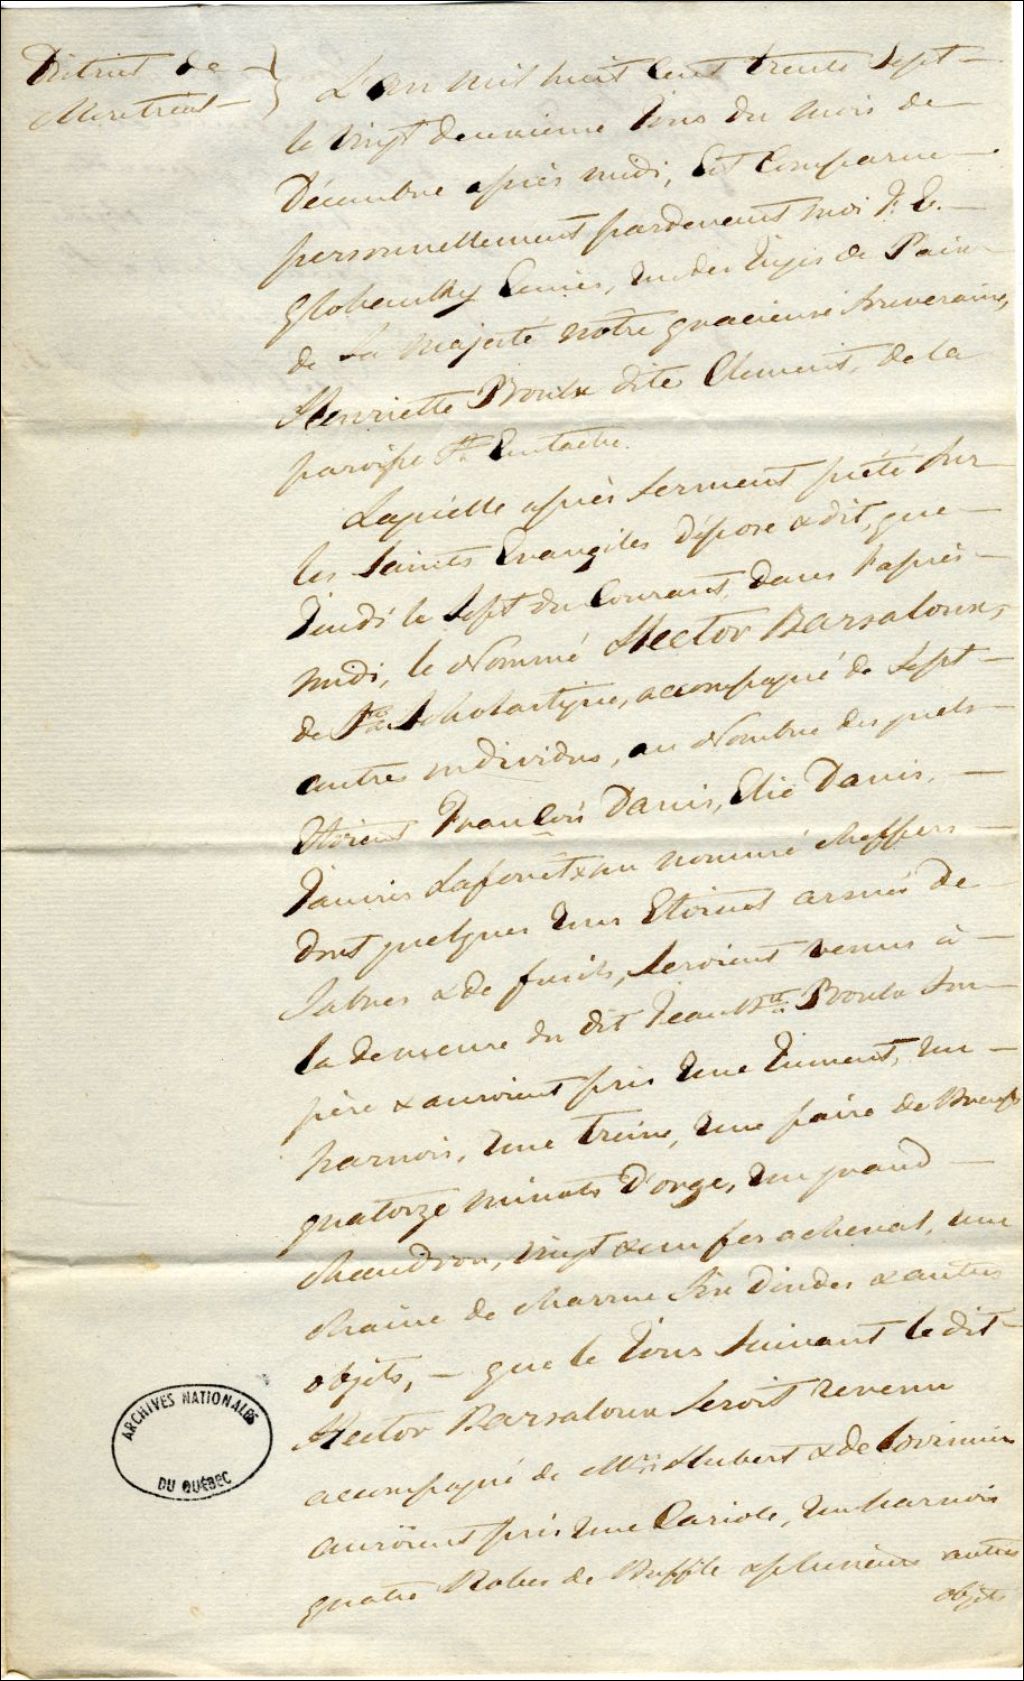 District de
Montréal
L'An mil huit cent trente Sept
le vingt deuxieme Jour du mois de
Décembre après midi, Est Comparue
personnellement pardevant moi F. E.
Globensky Ecuier, un des Juges de Paix
de Sa Majesté nôtre gracieuse Souveraine,
Henriette Proulx dite Clement, de la
paroisse St. Eustache.
Laquelle après Serment prété sur
les Saints Evangiles dépose & dit, que
Jeudi le Sept du Courant, dans l'après
midi, le Nommé Hector Barsaloux,
de Ste Scholastique, accompagné de Sept
autres individus, au Nombre des quels
Etoient François Danis, Elie Danis,
Janvier Laforêt & un nommé
dont quelques Uns Etoient armés de
Sabres & de fusils, Seroient venus à
la demeure du dit Jean Bte. Proulx Son
père & auroient pris Une Jument, un
harnois, Une Treine, Une paire de Boeufs
quatorze minots d'orge, un grand
chaudron, vingt & un fer a cheval, une
chaine de charrue Six Dindes & autres
objets, — que le Jour Suivant le dit
Hector Barsaloux Seroit revenu
accompagné de Mrs. Hubert & de Lorimier
auroient pris Une Cariole, Un harnois
quatre Robes de Buffle & plusieurs autres
objets
ARCHIVES NATIONALES
DU QUÉBEC